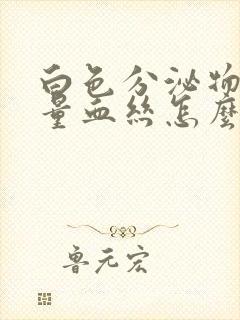 白色分泌物
量血丝怎麼
鲁元宏